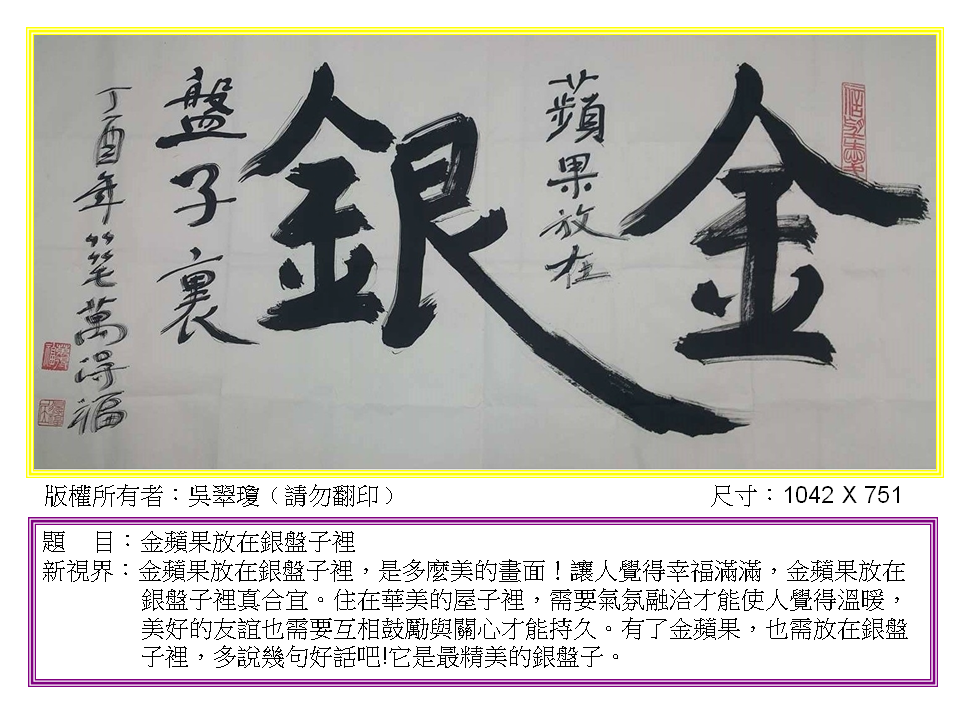 信望愛
金
蘋果放在
銀
盤子裏
丁酉年笔萬得福
版權所有者：吳翠瓊（請勿翻印） 尺寸：1042 X 751
題　目：金蘋果放在銀盤子裡
新視界：金蘋果放在銀盤子裡，是多麼美的畫面！讓人覺得幸福滿滿，金蘋果放在
銀盤子裡真合宜。住在華美的屋子裡，需要氣氛融洽才能使人覺得溫暖，
美好的友誼也需要互相鼓勵與關心才能持久。有了金蘋果，也需放在銀盤
子裡，多說幾句好話吧!它是最精美的銀盤子。